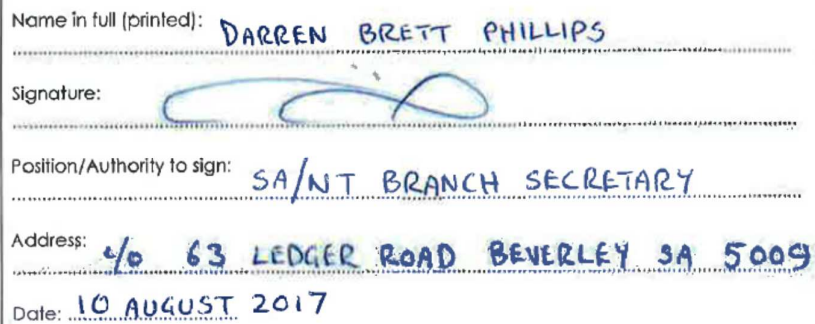 Name in full (printed): DARREN BRETT PHILLIPS
Signature:
Position/Authority to sign: SA/NT BRANCH SECRETARY
Address: c/o 63 LEDGER ROAD BEVERLEY SA 5009
Date: 10 AUGUST 2017